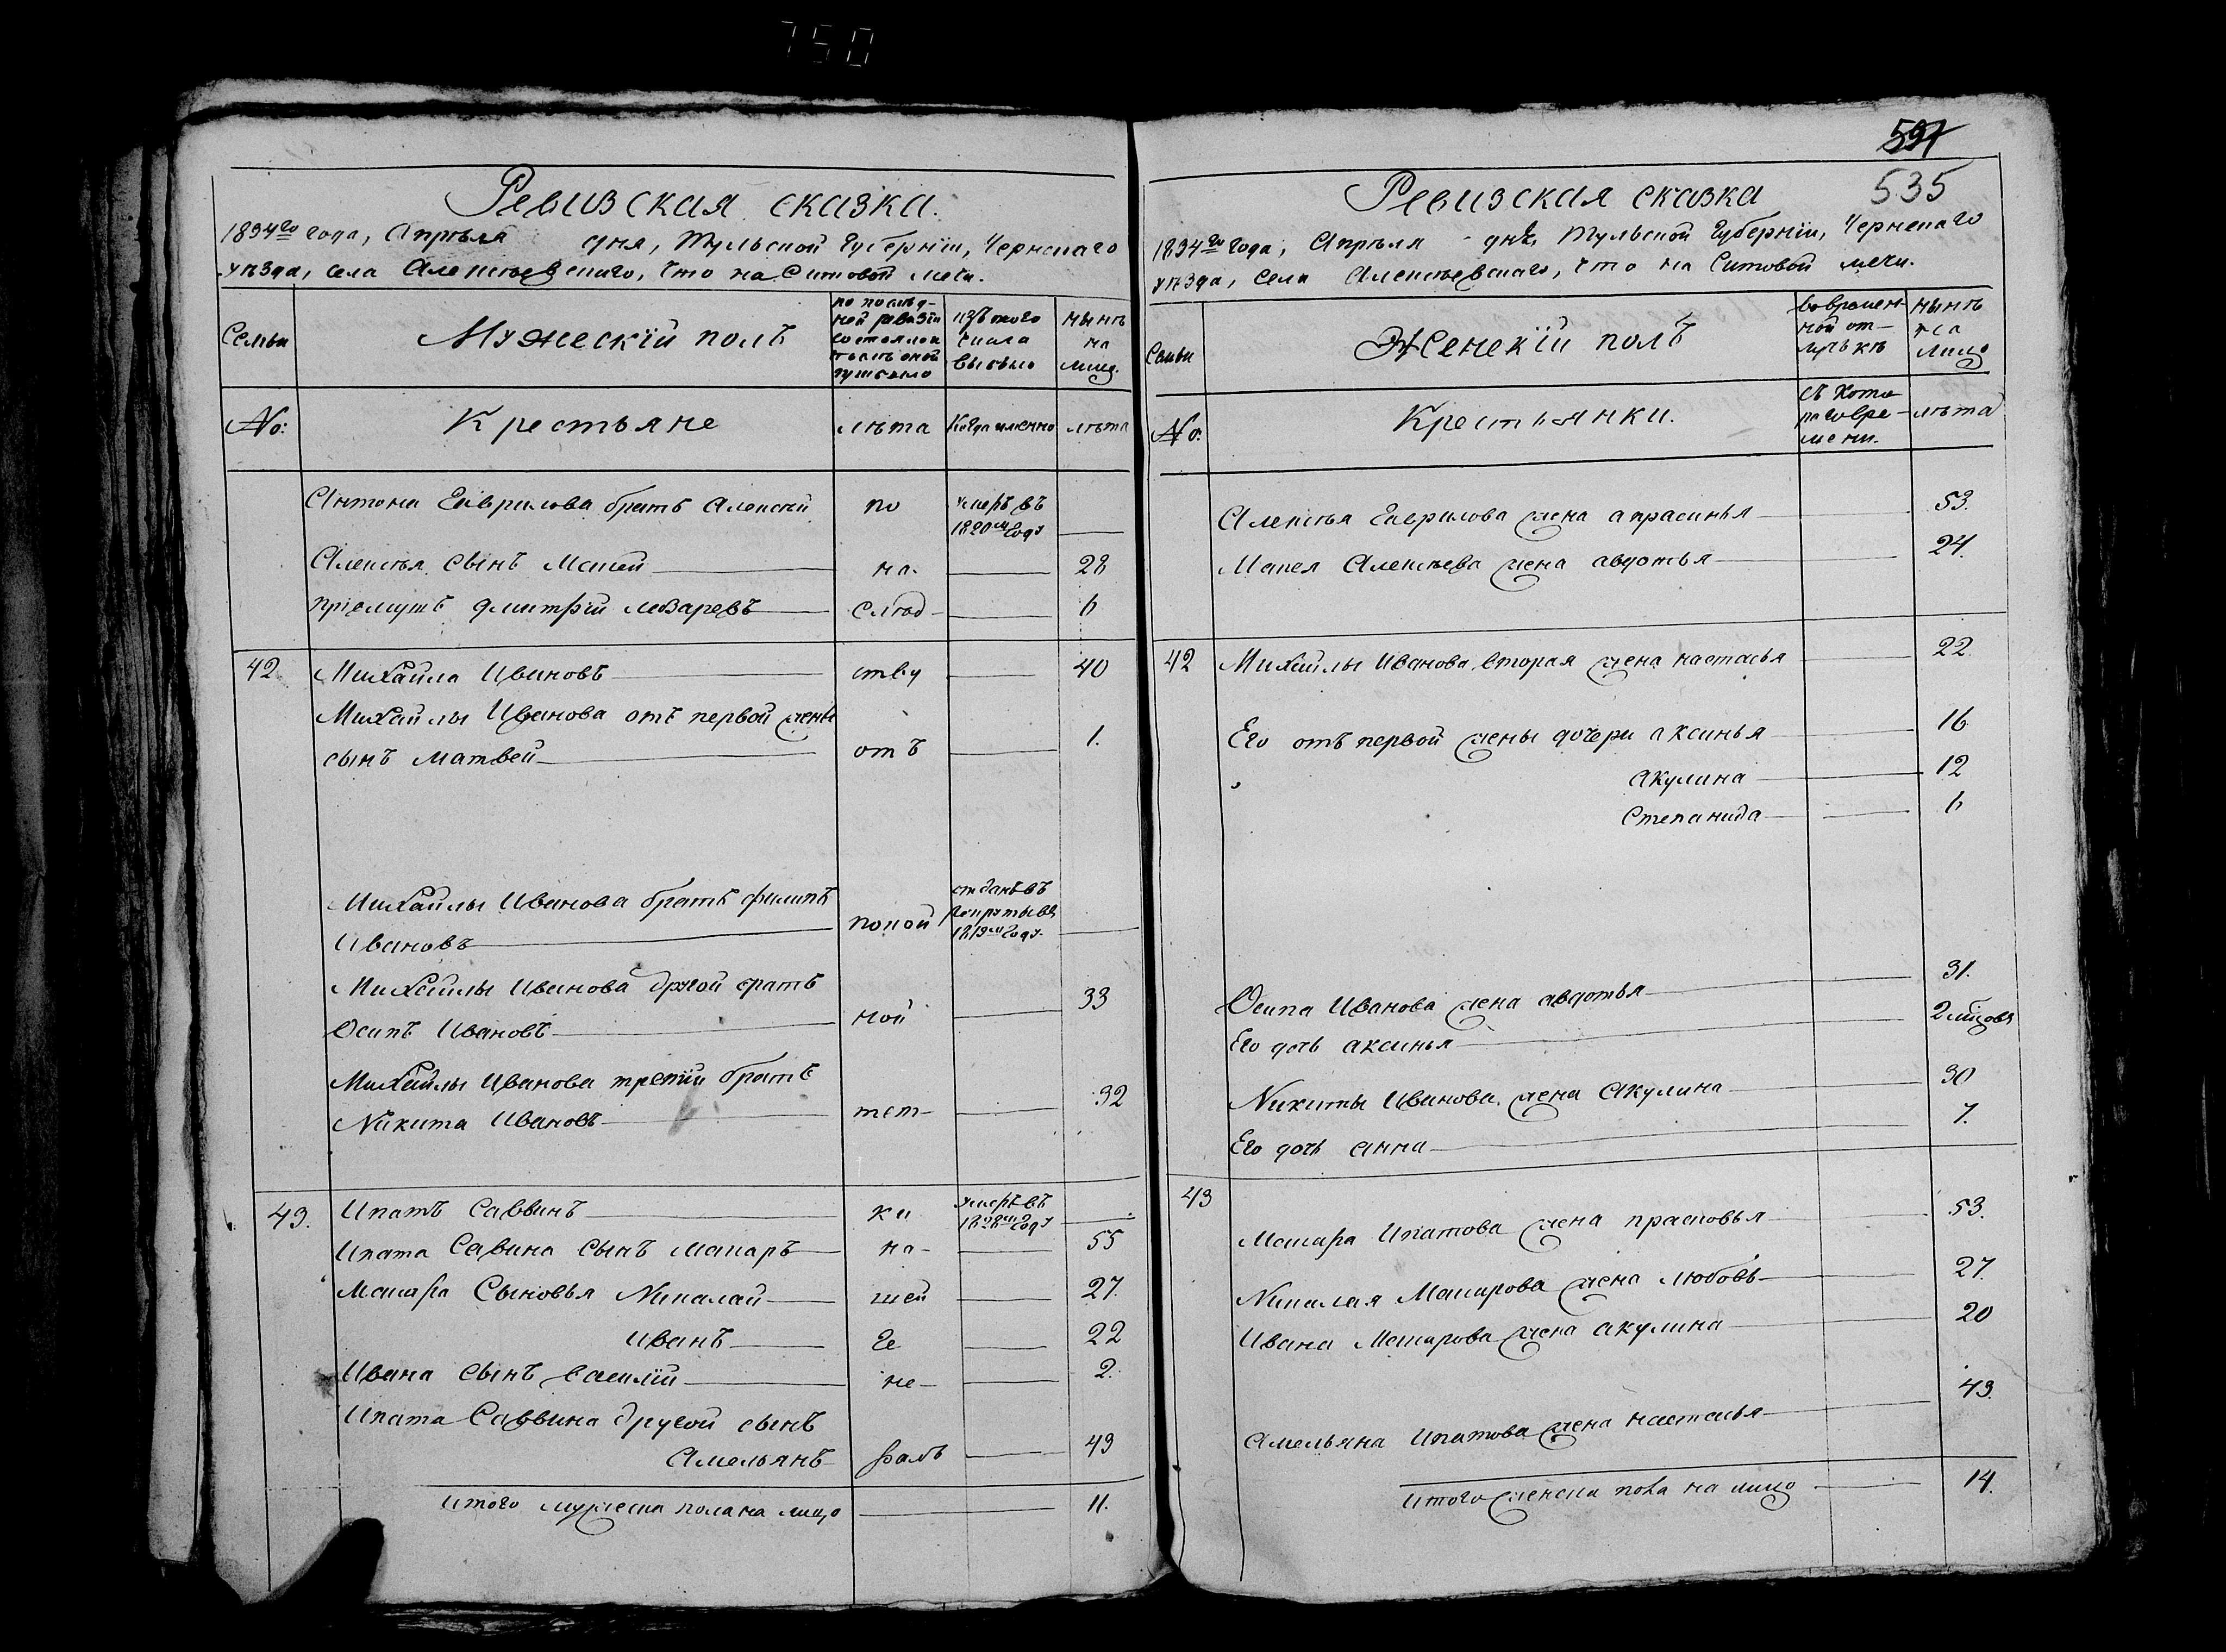 750
Ревизская сказка.
1834го года, Апреля дня, Тульской Губернїи, Чернскаго
уѣзда, села Алексѣевскаго, что на Ситовой мечи.
Семьи
Мужескїй полъ
по послѣд-
ной ревизїи
состояло и
послѣ оной
прибыло
изъ того
числа
выбыло
нынѣ
на
лицо.
No:
Крестьяне
лѣта
Когда именно
лѣта
Антона Гаврилова братъ Алексѣй по умеръ въ
1820м году
Алексѣя сынъ Мокей на- 28
прїемышъ дмитрїй лазаревъ слѣд- 6
42 Михайла Ивановъ ству 40
Михайлы Иванова отъ первой жены
сынъ матвей отъ 1.
Михайлы Иванова братъ филипъ
Ивановъ покой отданъ въ
рекруты въ
1819м году.
Михайлы Иванова другой братъ
Осипъ Ивановъ ной 33
Михайлы Иванова третїй братъ
Никита Ивановъ тет- 32
43. Ипатъ Саввинъ ки умеръ въ
1828м году
Ипата Савина сынъ макаръ на- 55
Макара Сыновья Николай шей 27.
Иванъ Че 22
Ивана сынъ василїй не- 2.
Ипата Саввина другой сынъ
Амельянъ 43
итого мужеска пола на лицо 11.
597
535
Ревизская сказка
1834го года, Апреля дня, Тульской Губернїи, Чернскаго
уѣзда, села Алексѣевскаго, что на Ситовой мечи.
Семьи
Женскїй полъ
во времен-
ной от-
лучкѣ
нынѣ
на
лицо
No:
Крестьянки.
съ кото-
раго вре-
мени.
лѣта
Алексѣя Гаврилова жена апрасинья 53.
Мокея Алексѣева жена авдотья 24.
42 Михайлы Иванова вторая жена настасья 22.
Его отъ первой жены дочери аксинья 16
акулина 12
Степанида 6
Осипа Иванова жена авдотья 31.
Его дочь аксинья
Никиты Иванова жена Акулина 30
Его дочь анна 7.
43
Макара Ипатова жена прасковья 53.
Николая Макарова жена любовь 27.
Ивана Макарова жена акулина 20
Амельяна Ипатова жена настасья 43.
итого женска пола на лицо 14.